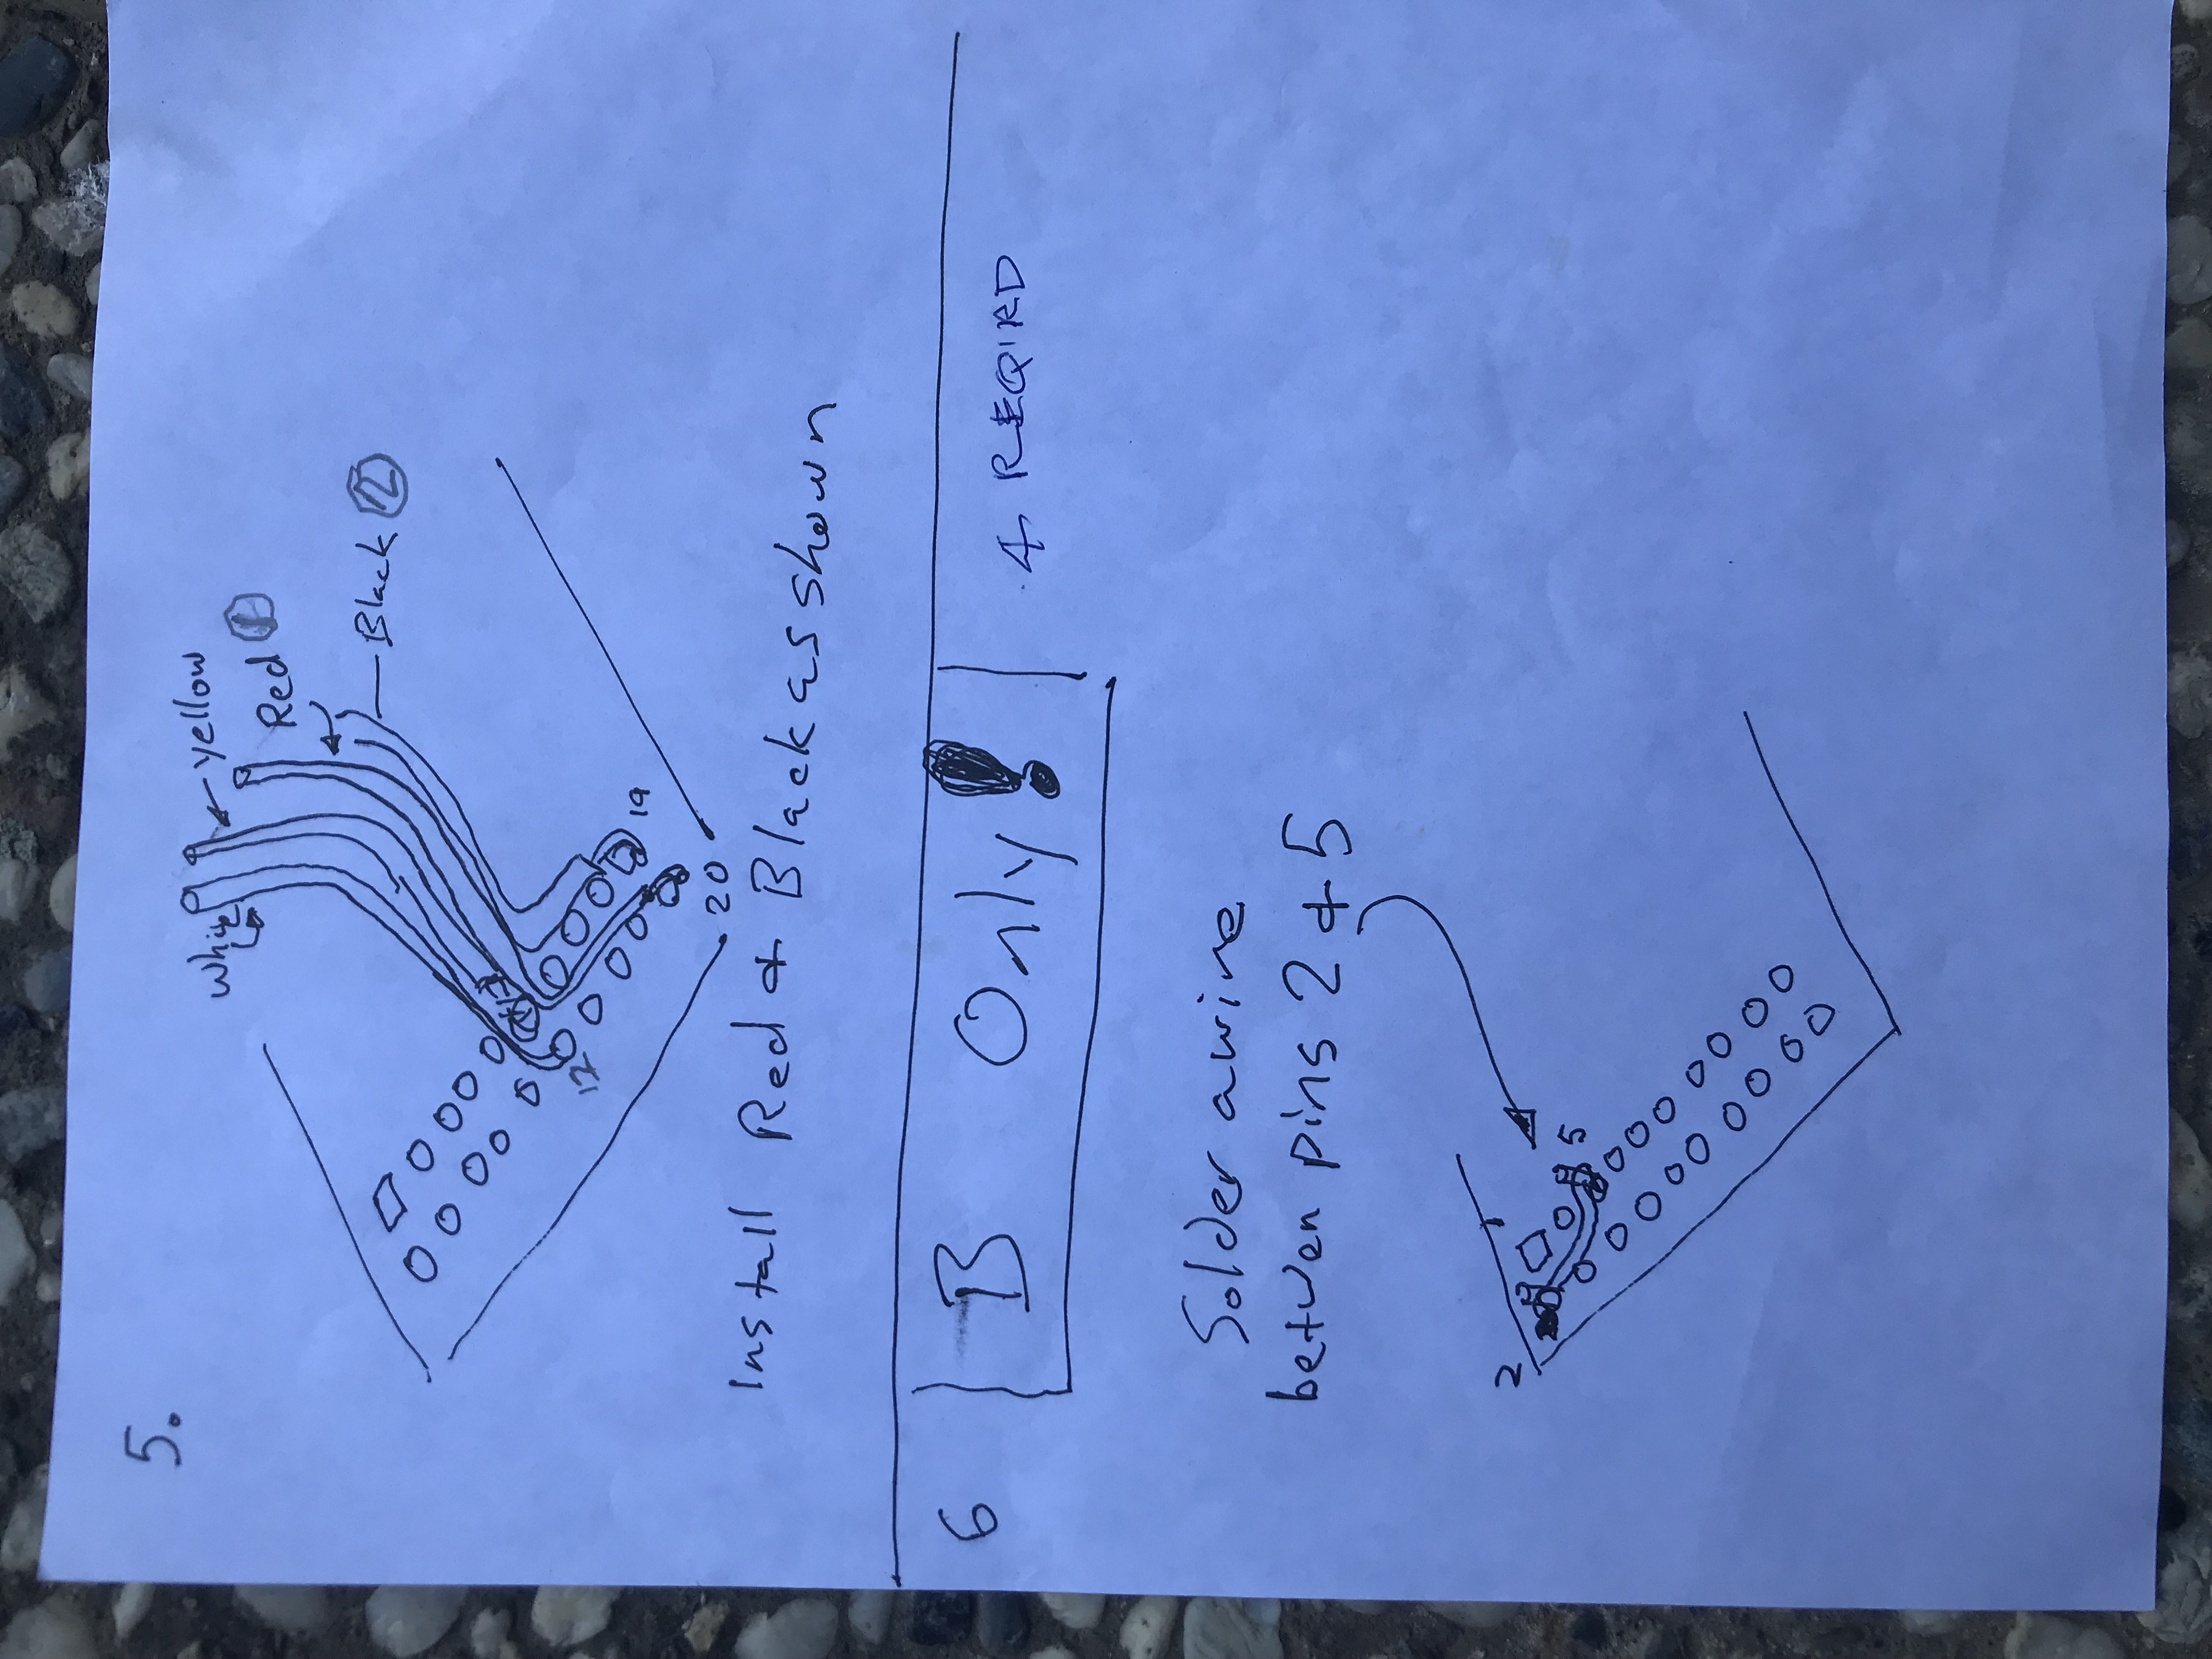 5.
White
yellow
Red 1
Black 2
12
19
20
Install Red & Black as shown
6
B Only!
4 REQ'RD
Solder a wire
betwen pins 2 & 5
2
1
5